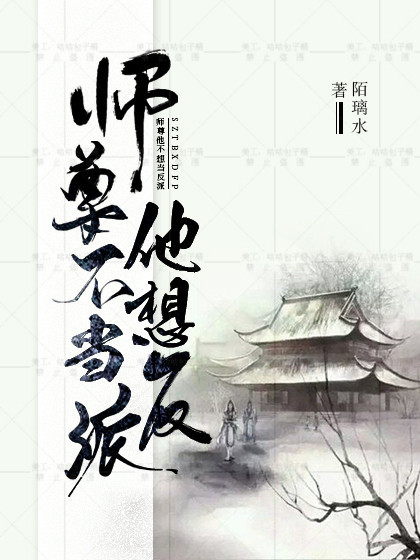 师尊他不想当反派
师尊他不想当反派
SZTBXDFP
陌璃水
著